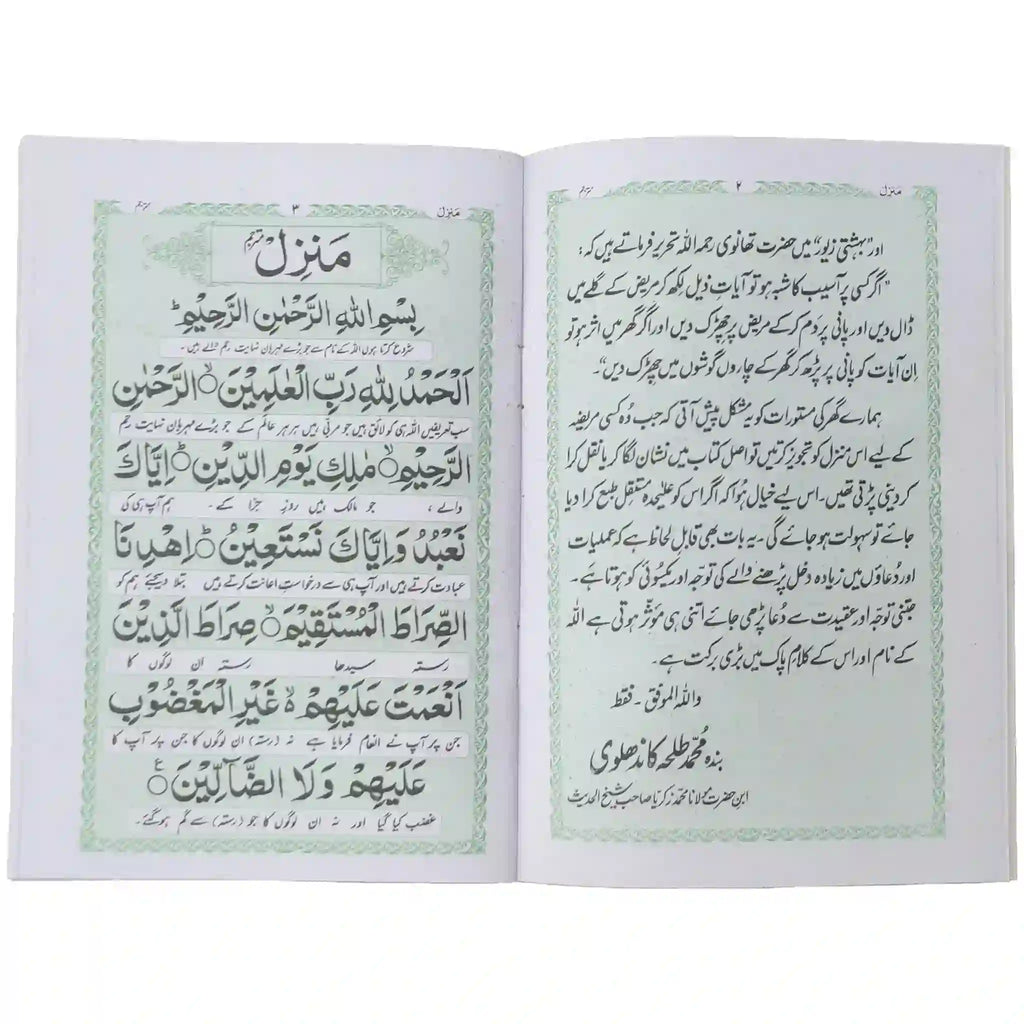 منزل ۲ مترجم
اور "بہشتی زیور" میں حضرت تھانوی رحمہ اللہ تحریر فرماتے ہیں کہ:
"اگر کسی پر آسیب کا شبہ ہو تو آیات ذیل لکھ کر مریض کے گلے میں
ڈال دیں اور پانی پر دَم کر کے مریض پر چھڑک دیں اور اگر گھر میں اثر ہو تو
اِن آیات کو پانی پر پڑھ کر گھر کے چاروں گوشوں میں چھڑک دیں"۔
ہمارے گھر کی مستورات کو یہ مشکل پیش آتی کہ جب وُہ کسی مریضہ
کے لیے اس منزل کو تجویز کرتیں تو اصل کتاب میں نشان لگا کر یا نقل کرا
کر دینی پڑتی تھیں۔ اس لیے خیال ہُوا کہ اگر اس کو علیحدہ مستقل طبع کرا دیا
جائے تو سہولت ہو جائے گی۔ یہ بات بھی قابلِ لحاظ ہے کہ عملیات
اور دُعاؤں میں زیادہ دخل پڑھنے والے کی توجّہ اور یکسوئی کو ہوتا ہے۔
جتنی توجّہ اور عقیدت سے دُعا پڑھی جائے اتنی ہی مؤثّر ہوتی ہے اللہ
کے نام اور اس کے کلامِ پاک میں بڑی برکت ہے۔
واللہ الموفق ۔ فقط
بندہ مُحمّد طلحہ کاندھلوی
ابن حضرت مولانا محمد زکریا صاحب شیخ الحدیث
منزل ۳ مترجم
مَنزِل مترجم
بِسْمِ اللهِ الرَّحْمٰنِ الرَّحِيْمِ ؕ
شروع کرتا ہوں اللہ کے نام سے جو بڑے مہربان نہایت رحم والے ہیں ۔
اَلْحَمْدُ لِلّٰهِ رَبِّ الْعٰلَمِيْنَ ۙ الرَّحْمٰنِ
سب تعریفیں اللہ ہی کو لائق ہیں جو مربّی ہیں ہر ہر عالم کے جو بڑے مہربان نہایت رحم
الرَّحِيْمِ ۙ مٰلِكِ يَوْمِ الدِّيْنِ ؕ اِيَّاكَ
والے ، جو مالک ہیں روزِ جزا کے ۔ ہم آپ ہی کی
نَعْبُدُ وَاِيَّاكَ نَسْتَعِيْنُ ؕ اِهْدِنَا
عبادت کرتے ہیں اور آپ ہی سے درخواستِ اعانت کرتے ہیں بتلا دیجئے ہم کو
الصِّرَاطَ الْمُسْتَقِيْمَ ۙ صِرَاطَ الَّذِيْنَ
رستہ سیدھا رستہ ان لوگوں کا
اَنْعَمْتَ عَلَيْهِمْ ۙ غَيْرِ الْمَغْضُوْبِ
جن پر آپ نے انعام فرمایا ہے نہ (رستہ) ان لوگوں کا جن پر آپ کا
عَلَيْهِمْ وَلَا الضَّآلِّيْنَ ۧ
غضب کیا گیا اور نہ ان لوگوں کا جو (رستہ) سے گم ہو گئے۔